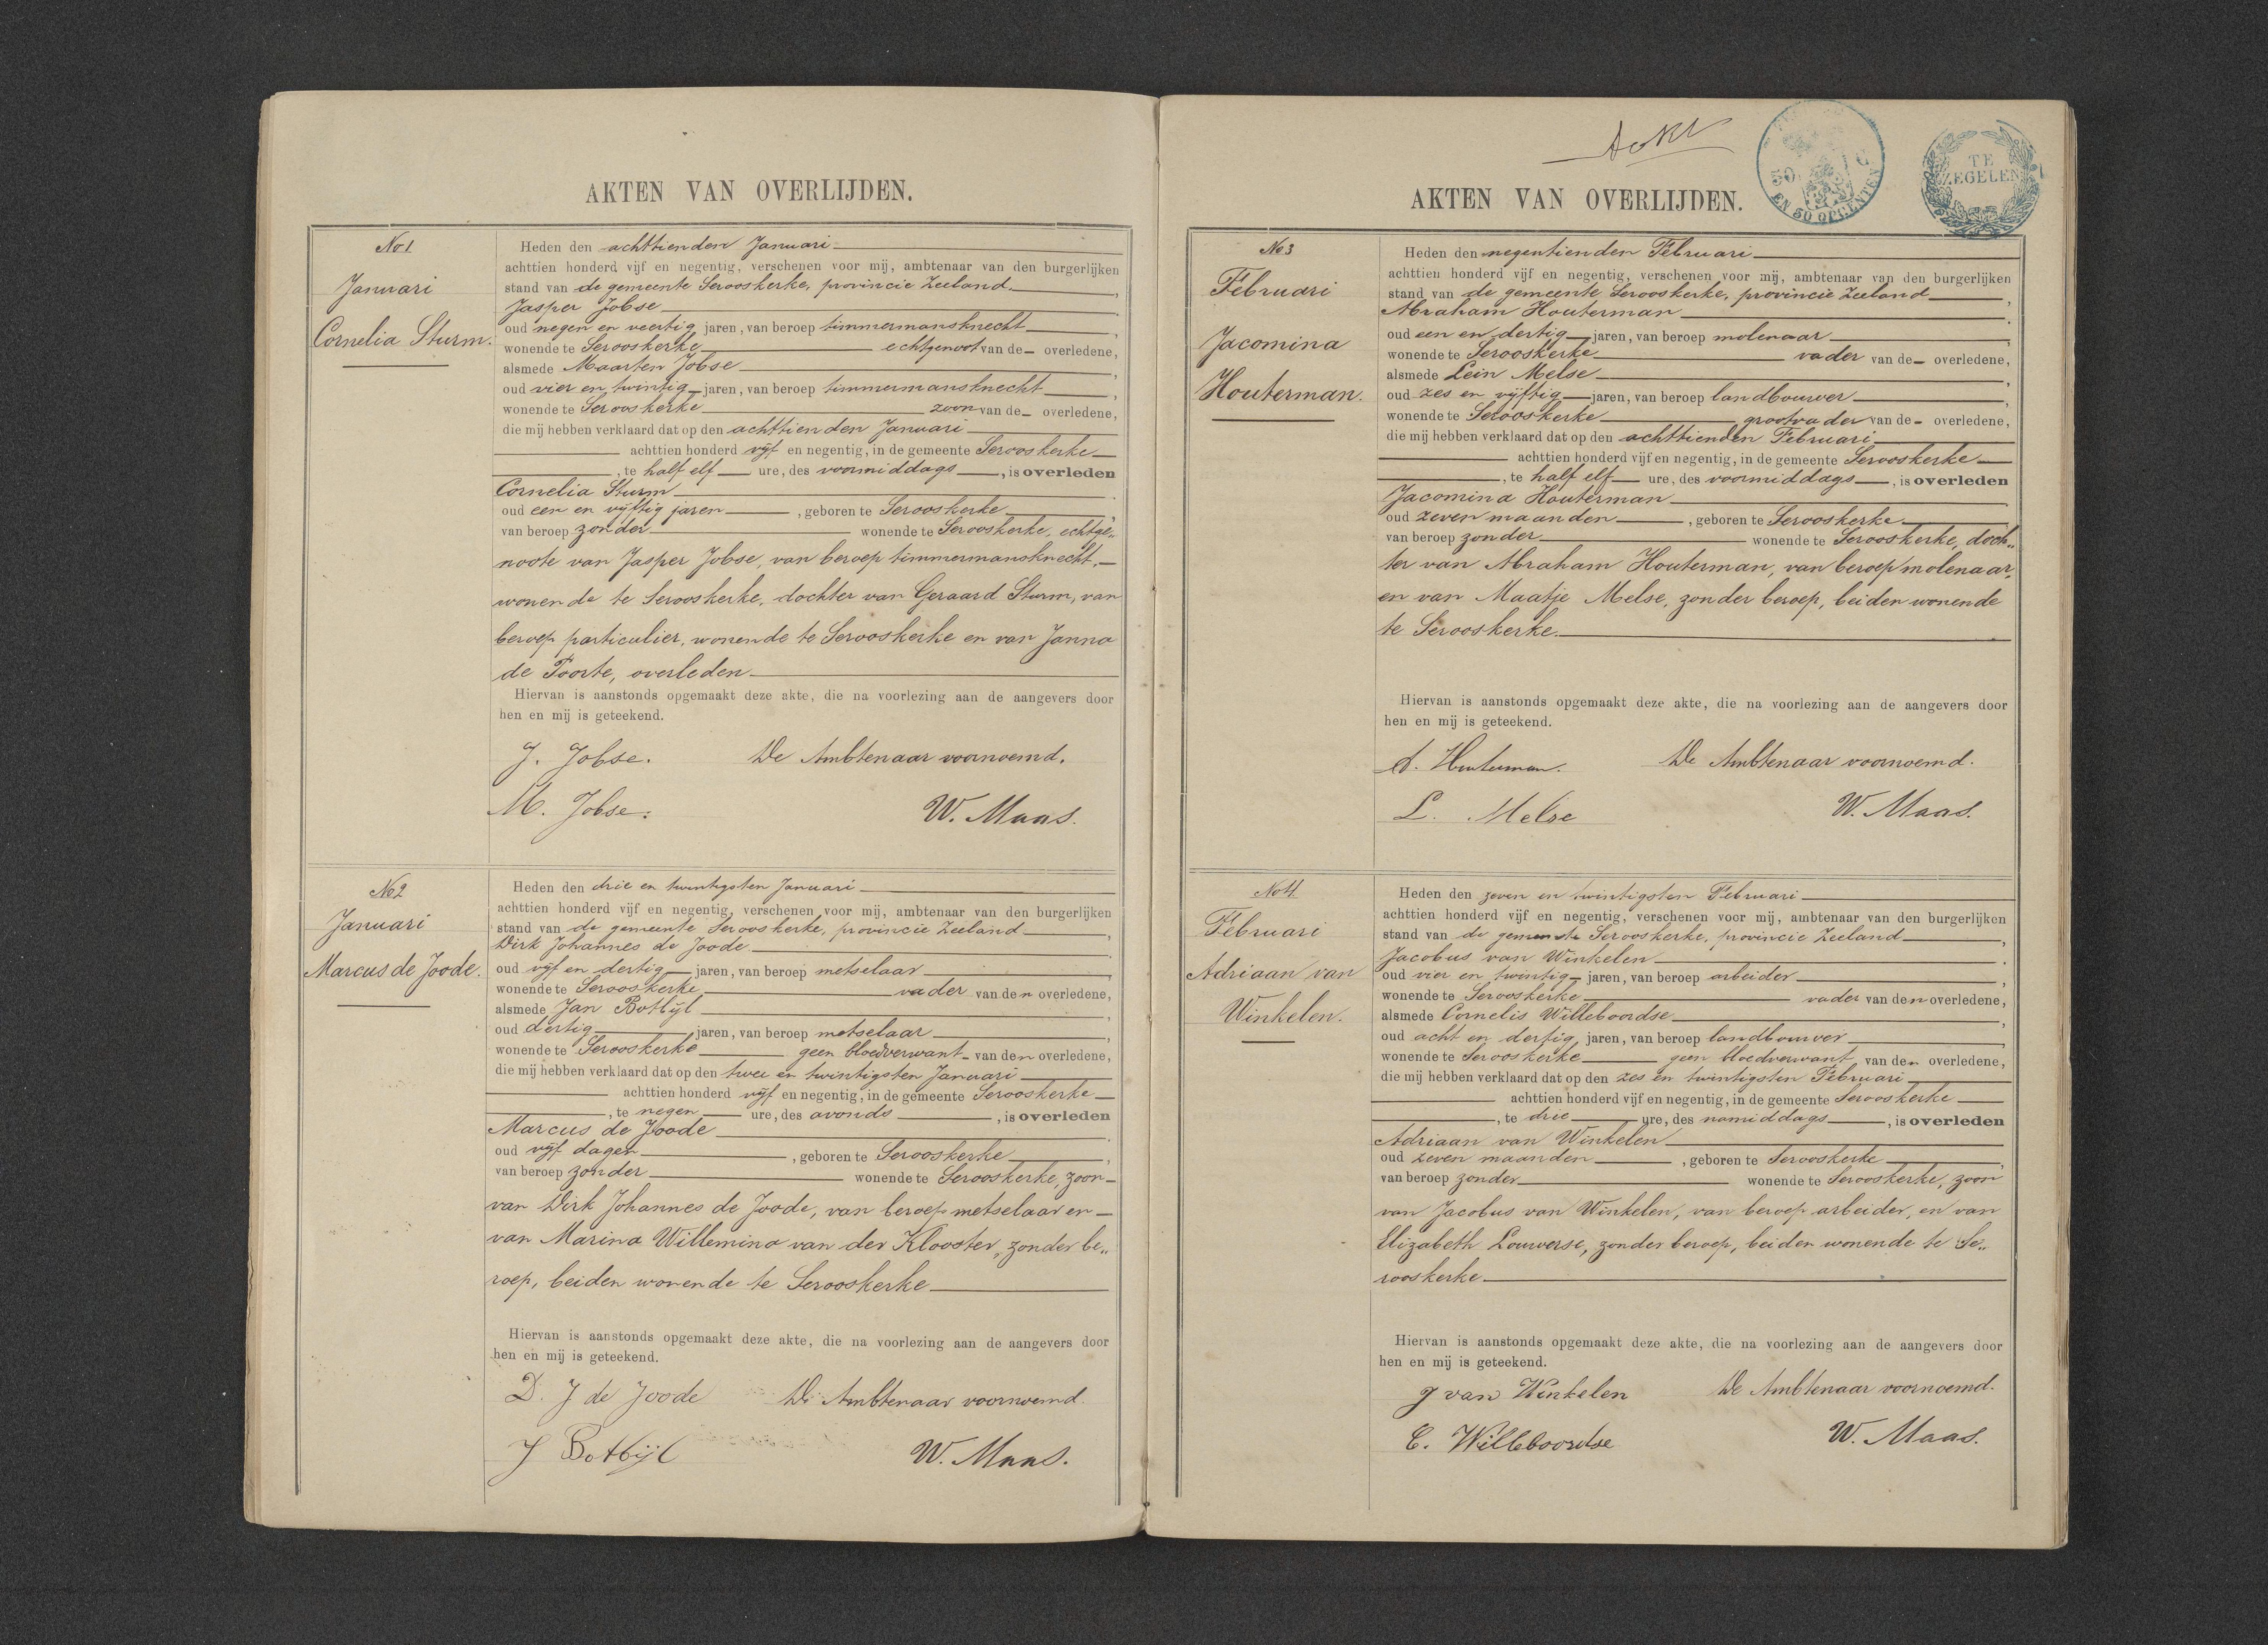 AKTEN VAN OVERLIJDEN.
No 1
Januari
Cornelia Sturm.
Heden den achttienden Januari
achttien honderd vijf en negentig, verschenen voor mij, ambtenaar van den burgerlijken
stand van de gemeente Serooskerke, provincie Zeeland,
Jasper Jobse
oud negen en veertig jaren, van beroep timmermansknecht,
wonende te Serooskerke echtgenoot van de overledene,
alsmede Maarten Jobse,
oud vier en twintig jaren, van beroep timmermansknecht,
wonende te Serooskerke zoon van de overledene,
die mij hebben verklaard dat op den achttienden Januari
achttien honderd vijf en negentig, in de gemeente Serooskerke
, te half elf ure, des voormiddags, is overleden
Cornelia Sturm
oud een en vijftig jaren, geboren te Serooskerke,
van beroep zonder wonende te Serooskerke, echtge„
noote van Jasper Jobse, van beroep timmermansknecht,
wonende te Serooskerke, dochter van Geraard Sturm, van
beroep particulier, wonende te Serooskerke en van Janna
de Poorte, overleden
Hiervan is aanstonds opgemaakt deze akte, die na voorlezing aan de aangevers door
hen en mij is geteekend.
J. Jobse. De Ambtenaar voornoemd.
M. Jobse. W. Maas.
No 2
Januari
Marcus de Joode.
Heden den drie en twintigsten Januari
achttien honderd vijf en negentig, verschenen voor mij, ambtenaar van den burgerlijken
stand van de gemeente Serooskerke, provincie Zeeland,
Dirk Johannes de Joode
oud vijf en dertig jaren, van beroep metselaar,
wonende te Serooskerke vader van den overledene,
alsmede Jan Botbijl,
oud dertig jaren, van beroep metselaar,
wonende te Serooskerke geen bloedverwant van den overledene,
die mij hebben verklaard dat op den twee en twintigsten Januari
achttien honderd vijf en negentig, in de gemeente Serooskerke
, te negen ure, des avonds, is overleden
Marcus de Joode
oud vijf dagen, geboren te Serooskerke,
van beroep zonder wonende te Serooskerke, zoon
van Dirk Johannes de Joode, van beroep metselaar en
van Marina Willemina van der Klooster, zonder be„
roep, beiden wonende te Serooskerke
Hiervan is aanstonds opgemaakt deze akte, die na voorlezing aan de aangevers door
hen en mij is geteekend.
D. J de Joode De Ambtenaar voornoemd.
J Botbijl W. Maas.
50 C
EN 50 OPCENTEN
TE
ZEGELEN
AKTEN VAN OVERLIJDEN.
No 3
Februari
Jacomina
Houterman.
Heden den negentienden Februari
achttien honderd vijf en negentig, verschenen voor mij, ambtenaar van den burgerlijken
stand van de gemeente Serooskerke, provincie Zeeland,
Abraham Houterman
oud een en dertig jaren, van beroep molenaar,
wonende te Serooskerke vader van de overledene,
alsmede Lein Melse,
oud zes en vijftig jaren, van beroep landbouwer,
wonende te Serooskerke grootvader van de overledene,
die mij hebben verklaard dat op den achttienden Februari
achttien honderd vijf en negentig, in de gemeente Serooskerke
, te half elf ure, des voormiddags, is overleden
Jacomina Houterman
oud zeven maanden, geboren te Serooskerke,
van beroep zonder wonende te Serooskerke, doch„
ter van Abraham Houterman, van beroep molenaar,
en van Maatje Melse, zonder beroep, beiden wonende
te Serooskerke.
Hiervan is aanstonds opgemaakt deze akte, die na voorlezing aan de aangevers door
hen en mij is geteekend.
A. Houterman. De Ambtenaar voornoemd.
L. Melse W. Maas.
No 4
Februari
Adriaan van
Winkelen.
Heden den zeven en twintigsten Februari
achttien honderd vijf en negentig, verschenen voor mij, ambtenaar van den burgerlijken
stand van de gemeente Serooskerke, provincie Zeeland,
Jacobus van Winkelen
oud vier en twintig jaren, van beroep arbeider,
wonende te Serooskerke vader van den overledene,
alsmede Cornelis Willeboordse,
oud acht en dertig jaren, van beroep landbouwer,
wonende te Serooskerke geen bloedverwant van den overledene,
die mij hebben verklaard dat op den zes en twintigsten Februari
achttien honderd vijf en negentig, in de gemeente Serooskerke
, te drie ure, des namiddags, is overleden
Adriaan van Winkelen
oud zeven maanden, geboren te Serooskerke,
van beroep zonder wonende te Serooskerke, zoon
van Jacobus van Winkelen, van beroep arbeider, en van
Elizabeth Louwerse, zonder beroep, beiden wonende te Se„
rooskerke
Hiervan is aanstonds opgemaakt deze akte, die na voorlezing aan de aangevers door
hen en mij is geteekend.
J van Winkelen De Ambtenaar voornoemd.
C. Willeboordse W. Maas.